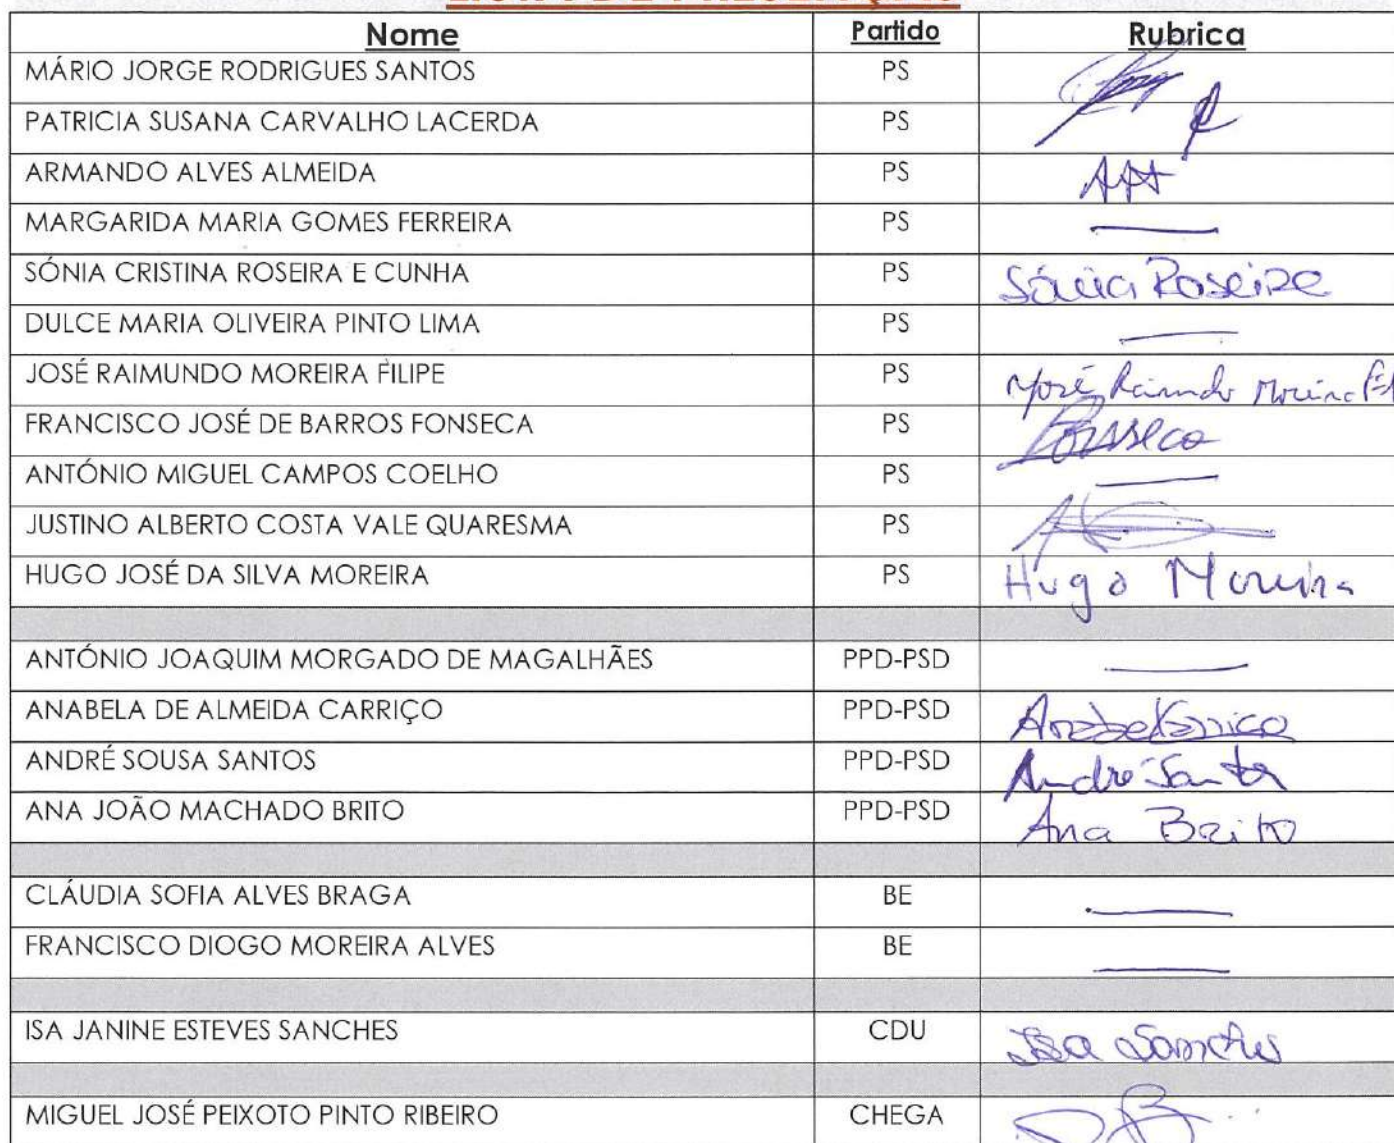 Nome Partido Rubrica
MÁRIO JORGE RODRIGUES SANTOS PS
PATRICIA SUSANA CARVALHO LACERDA PS
ARMANDO ALVES ALMEIDA PS
MARGARIDA MARIA GOMES FERREIRA PS
SÓNIA CRISTINA ROSEIRA E CUNHA PS Sónia Roseira
DULCE MARIA OLIVEIRA PINTO LIMA PS
JOSÉ RAIMUNDO MOREIRA FILIPE PS José Raimundo Moreira
FRANCISCO JOSÉ DE BARROS FONSECA PS Fonseca
ANTÓNIO MIGUEL CAMPOS COELHO PS
JUSTINO ALBERTO COSTA VALE QUARESMA PS
HUGO JOSÉ DA SILVA MOREIRA PS Hugo Moreira
ANTÓNIO JOAQUIM MORGADO DE MAGALHÃES PPD-PSD
ANABELA DE ALMEIDA CARRIÇO PPD-PSD Anabela Carriço
ANDRÉ SOUSA SANTOS PPD-PSD André Santos
ANA JOÃO MACHADO BRITO PPD-PSD Ana Brito
CLÁUDIA SOFIA ALVES BRAGA BE
FRANCISCO DIOGO MOREIRA ALVES BE
ISA JANINE ESTEVES SANCHES CDU Isa Sanches
MIGUEL JOSÉ PEIXOTO PINTO RIBEIRO CHEGA